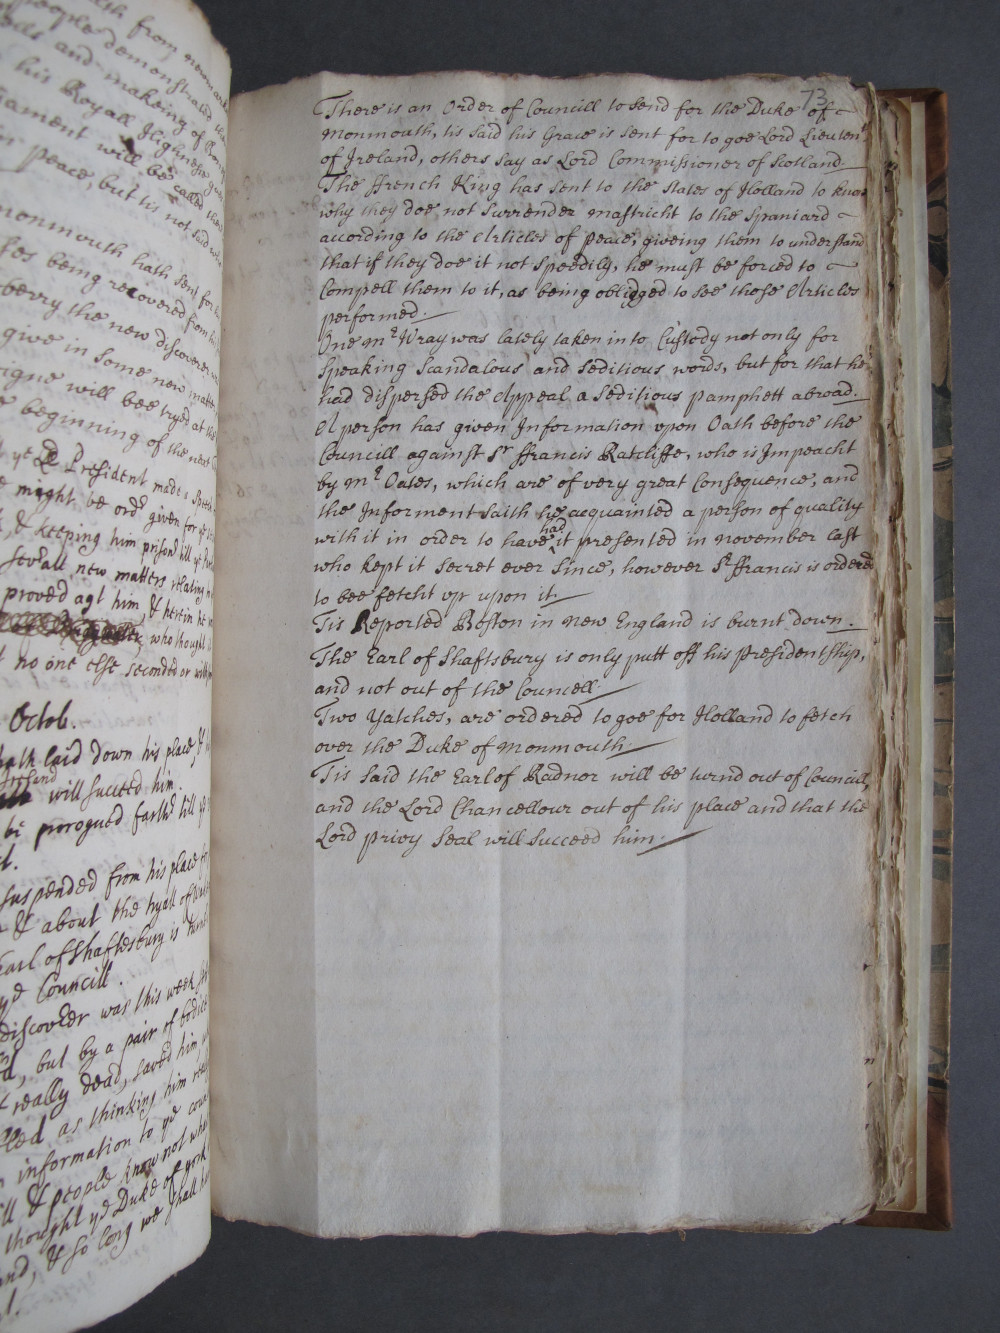 from newmark
people demonstrated
and makeing of
his Royall Highness
will be called
peace, but tis not said
monmouth hath sent for
being recovered from his
berry the new discoverer
give in some new matter,
will bee tryed at the
beginning of the next
ye Ld President made a speech
might be ordr given for ye
& keeping him prisonr till ye
severall new matters relating
proved agt him, & herein he
who thought
no one else seconded or
Octob.
hath laid down his place, &
will succeed him.
be prorogued farthr till
suspended from his place
& about the tryall of
Earl of Shaftesbury is turnd
ye Councill.
discoverer was this week
but by a pair of bodice
really dead, saved him,
as thinking him
information to ye
& people know not what
thought ye Duke of york
& so long we shall
73
There is an Order of Councill to send for the Duke of
Monmouth, tis said his Grace is sent for to goe Lord Lieutent
of Ireland, others say as Lord Commissioner of Scotland.
The ffrench King has sent to the States of Holland to know
why they doe not Surrender mastricht to the Spaniard
according to the Articles of Peace, giveing them to understand
that if they doe it not Speedily, he must be forced to
Compell them to it, as being obligged to see those Articles
performed.
One Mr Wray was lately taken in to Custody not only for
Speaking Scandalous and Seditious words, but for that he
had dispersed the Appeal a Seditious pamphett abroad.
A person has given Information upon Oath before the
Councill against Sr ffrancis Ratcliffe, who is Impeacht
by Mr Oates, which are of very great Consequence, and
the Informent saith he acquainted a person of quality
with it in order to have had it presented in november last
who kept it Secret ever Since, however Sr ffrancis is ordered
to bee fetcht up upon it.
Tis Reported Boston in new England is burnt down.
The Earl of Shaftsbury is only putt off his presidentship,
and not out of the Councell.
Two Yatches, are ordered to goe for Holland to fetch
over the Duke of Monmouth.
Tis said the Earl of Radnor will be turnd out of Councill,
and the Lord Chancellour out of his place and that the
Lord privy Seal will Succeed him.